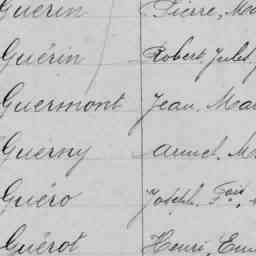 Guérin Pierre, Ma
Guérin Robert, Jules, J
Guermont Jean, Ma
Guerny M
Guéro Joseph, Fois,
Guérot Henri, Em